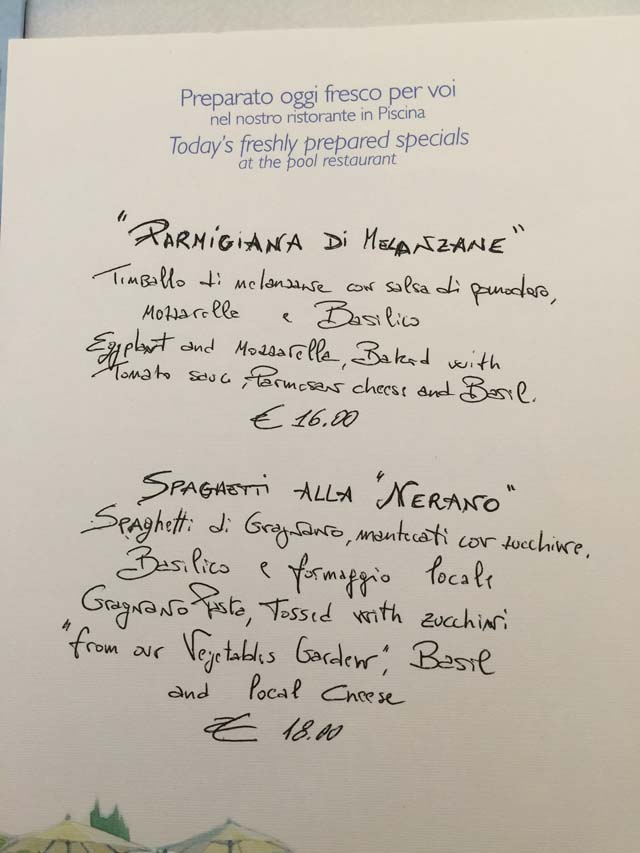 Preparato oggi fresco per voi
nel nostro ristorante in Piscina
Today's freshly prepared specials
at the pool restaurant
"PARMIGIANA DI MELANZANE"
Timballo di melanzane con salsa di pomodoro,
Mozzarella e Basilico
Eggplant and Mozzarella, Baked with
Tomato sauc, Parmesan cheese and Basil.
€ 16.00
SPAGHETTI ALLA "NERANO"
Spaghetti di Gragnano, mantecati con zucchine,
Basilico e formaggio locale
Gragnano Pasta, Tossed with zucchini
"from our Vegetables Garden", Basil
and local Cheese
€ 18.00